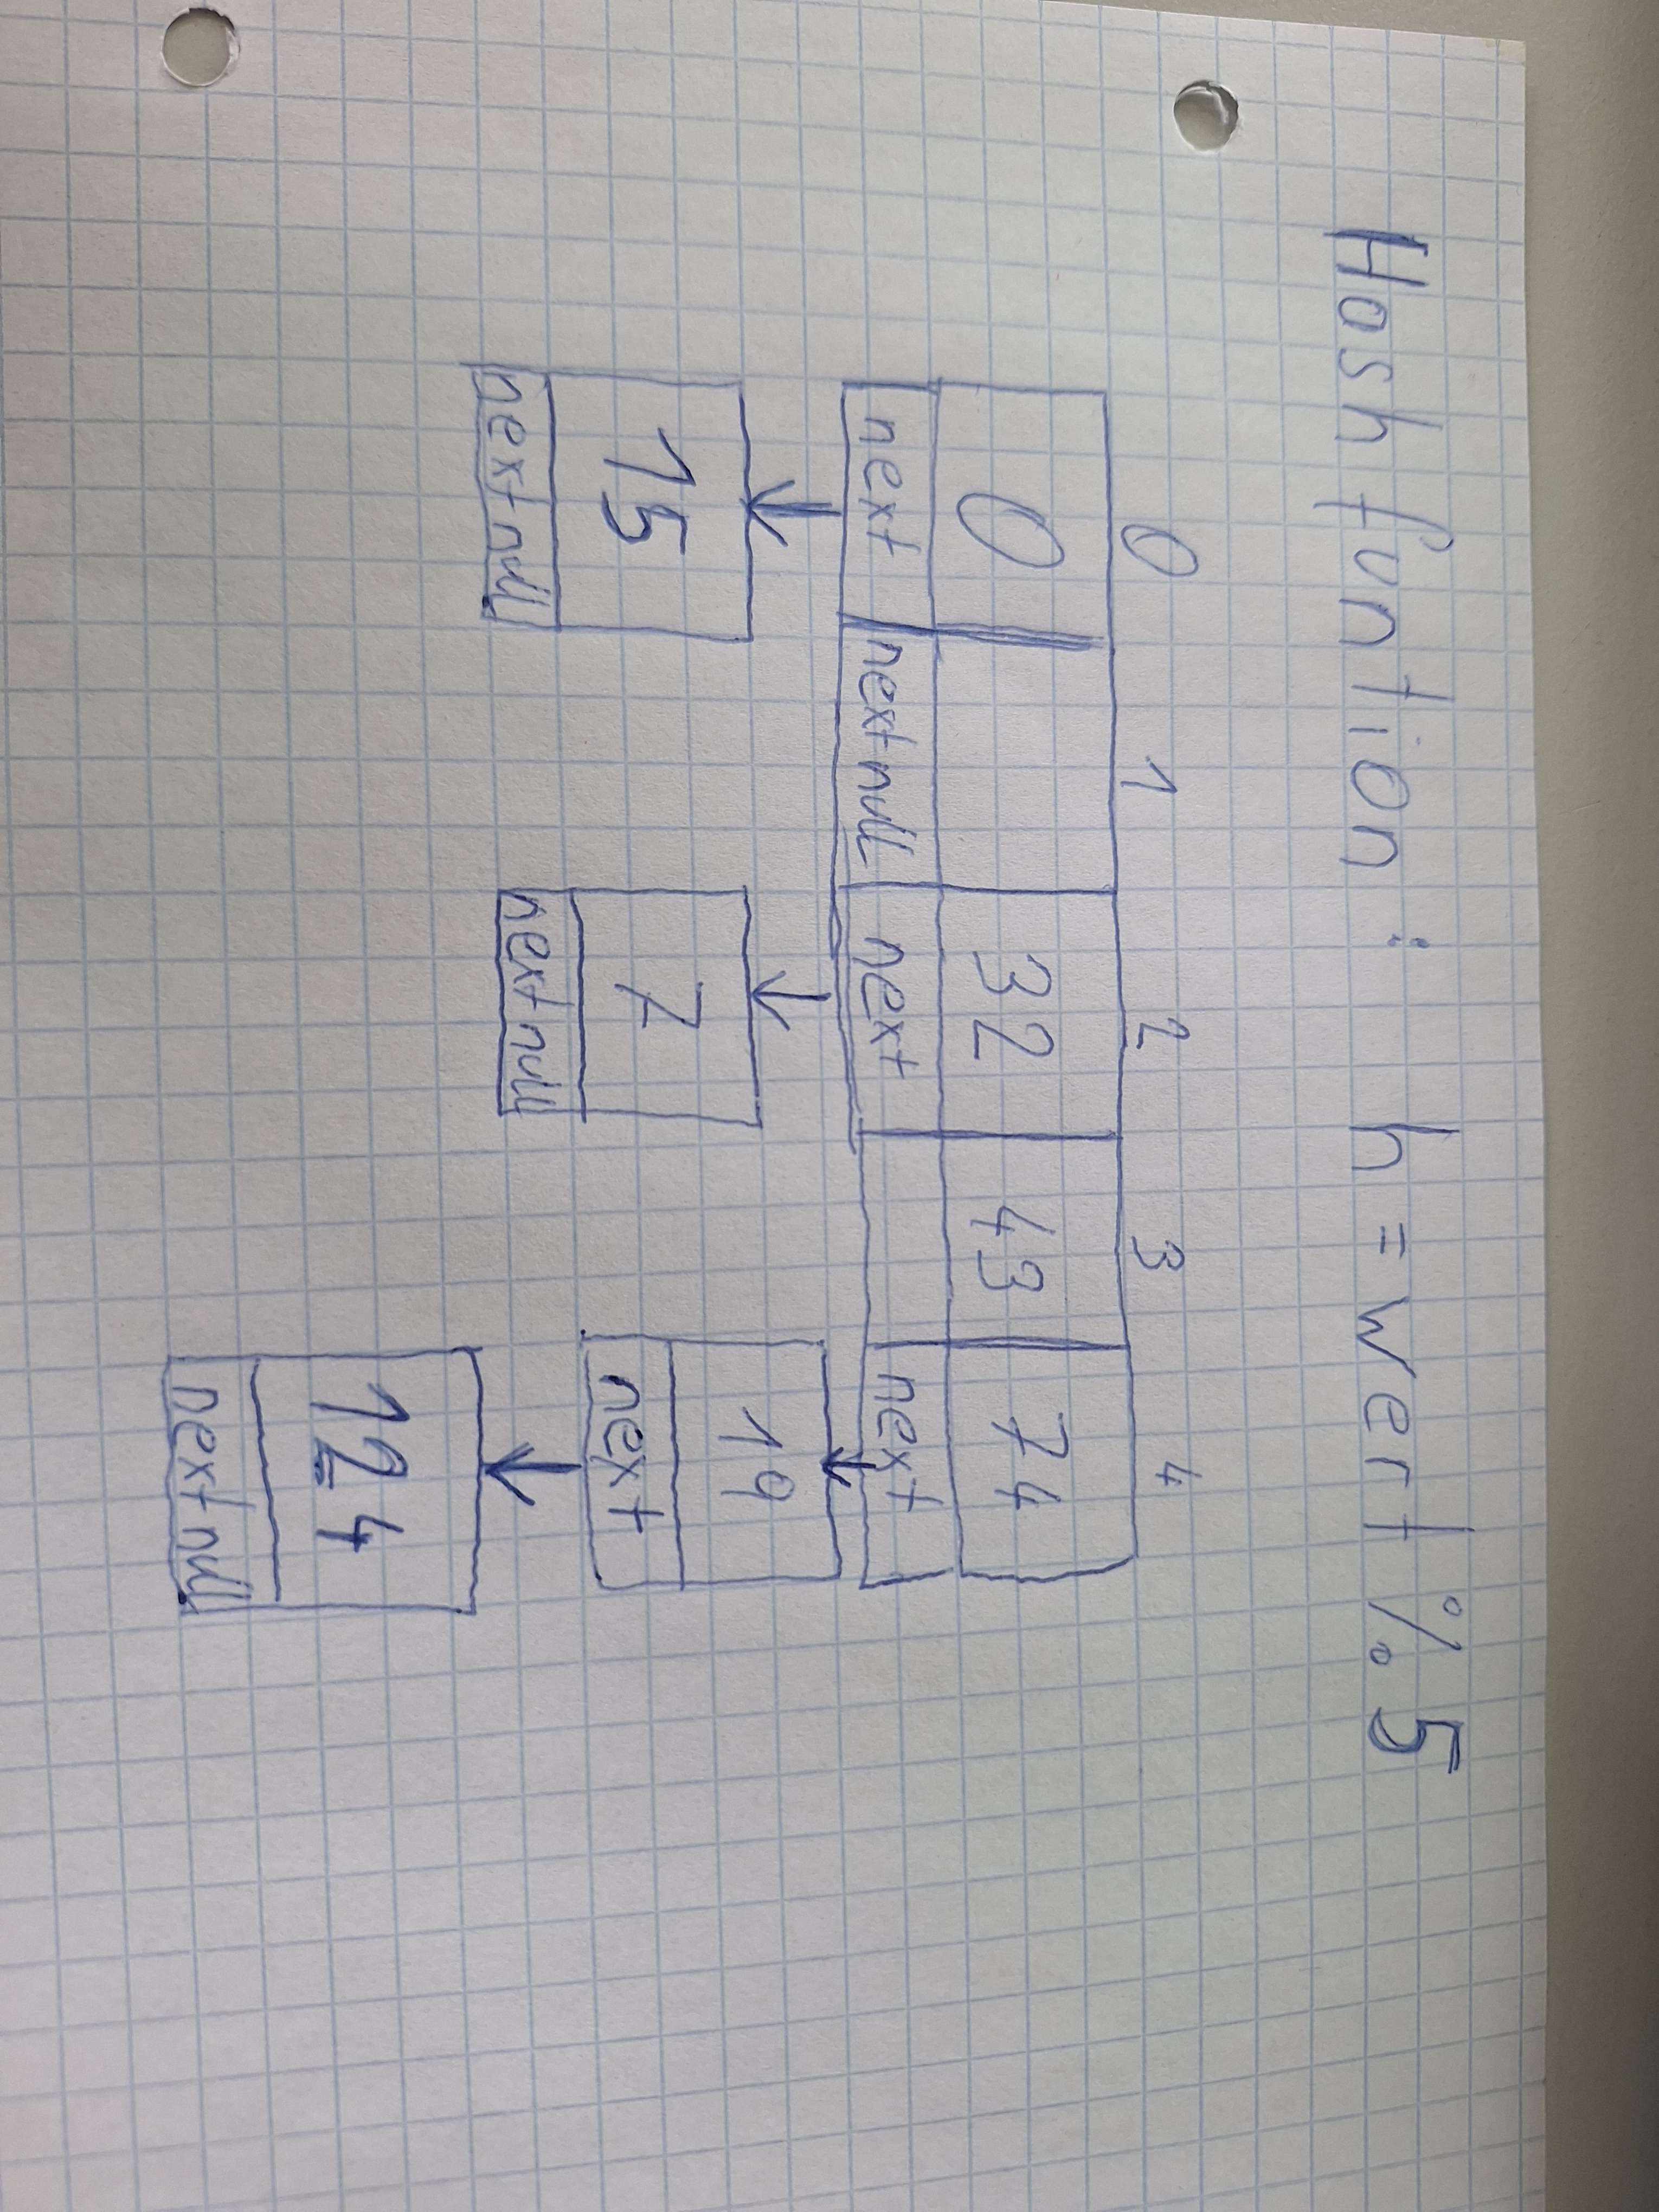 Hashfuntion: h = wert % 5
0 1 2 3 4
0 32 43 74
next next null next next
19
15 7
next
next null next null
124
next null